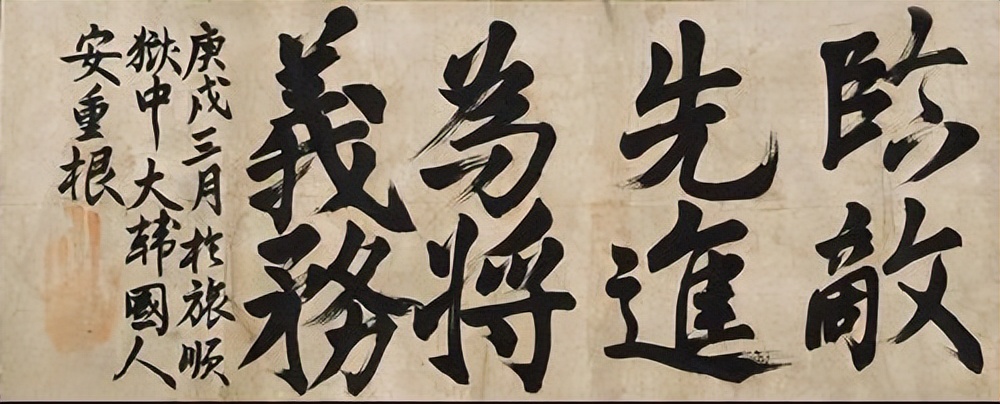 臨敵
先進
為将
義務
庚戌三月於旅順
獄中大韓國人
安重根